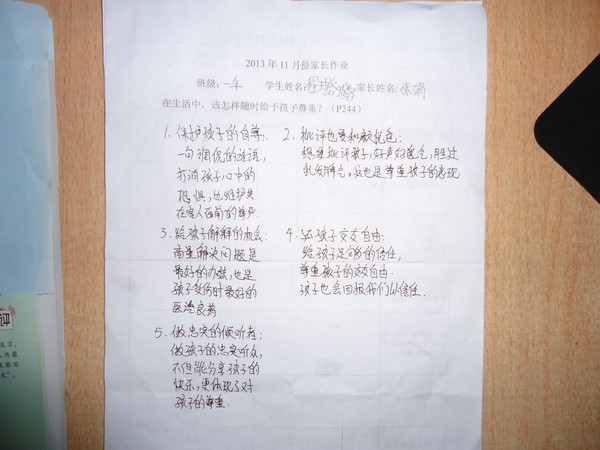 2013年11月份家长作业
班级:一年 学生姓名: 家长姓名:张
在生活中,该怎样随时给予孩子尊重?(P244)
1. 保护孩子的自尊:
一句调侃的话语,
打消孩子心中的
恐惧,也维护其
在家人面前的尊严
2. 批评也要和颜悦色:
想要批评教子,好声好言,胜过
乱发脾气,这也是尊重孩子的表现
3. 给孩子解释的机会:
商量解决问题是
最好的办法,也是
孩子受伤时最好的
医治良药
4. 孩子交友自由:
给孩子足够的信任,
尊重孩子的交友自由.
孩子也会回报我们以信任.
5. 做忠实的倾听者:
做孩子的忠实听众,
不但能分享孩子的
快乐,更体现了对
孩子的尊重.
评